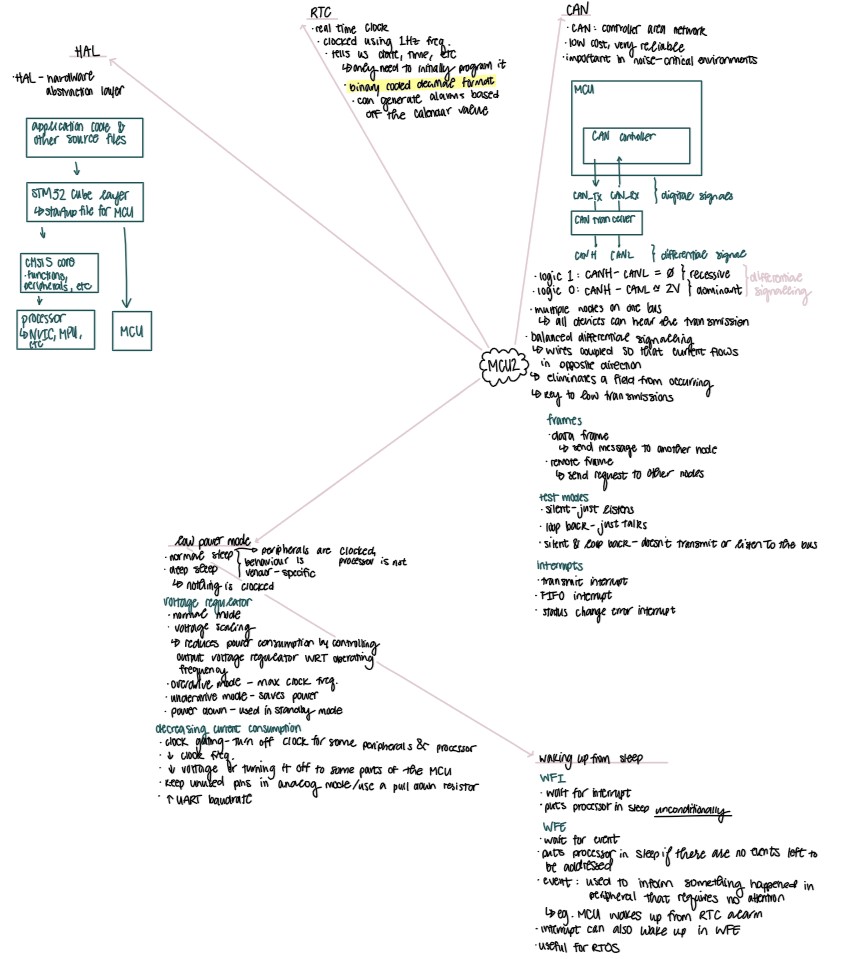 HAL
·HAL - hardware
abstraction layer
application code &
other source files
STM32 Cube layer
↳startup file for MCU
CMSIS core
·functions,
peripherals, etc
processor
↳NVIC, MPU,
etc
MCU
RTC
·real time clock
·clocked using 1Hz freq.
·tells us date, time, etc
↳only need to initially program it
·binary coded decimal format
·can generate alarms based
off the calendar value
CAN
·CAN: controller area network
·low cost, very reliable
·important in noise-critical environments
MCU
CAN controller
CAN_TX CAN_RX } digital signals
CAN tranceiver
CANH CANL } differential signal
·logic 1: CANH - CANL = 0 } recessive
·logic 0: CANH - CANL ≈ 2V } dominant
differential
signalling
·multiple nodes on one bus
↳ all devices can hear the transmission
·balanced differential signalling
↳ wires coupled so that current flows
in opposite direction
↳ eliminates a field from occurring
↳ key to low transmissions
MCU2
frames
·data frame
↳ send message to another node
·remote frame
↳ send request to other nodes
test modes
·silent - just listens
·loop back - just talks
·silent & loop back - doesn't transmit or listen to the bus
interrupts
·transmit interrupt
·FIFO interrupt
·status change error interrupt
low power mode
·normal sleep → peripherals are clocked,
processor is not
·deep sleep
↳ nothing is clocked
} behaviour is
vendor-specific
voltage regulator
·normal mode
·voltage scaling
↳ reduces power consumption by controlling
output voltage regulator WRT operating
frequency
·overdrive mode - max clock freq.
·underdrive mode - saves power
·power down - used in standby mode
decreasing current consumption
·clock gating - turn off clock for some peripherals & processor
·↓ clock freq.
·↓ voltage or turning it off to some parts of the MCU
·keep unused pins in analog mode/use a pull down resistor
·↑ UART baudrate
waking up from sleep
WFI
·wait for interrupt
·puts processor in sleep unconditionally
WFE
·wait for event
·puts processor in sleep if there are no events left to
be addressed
·event: used to inform something happened in
peripheral that requires no attention
↳ eg. MCU wakes up from RTC alarm
·interrupt can also wake up in WFE
·useful for RTOS